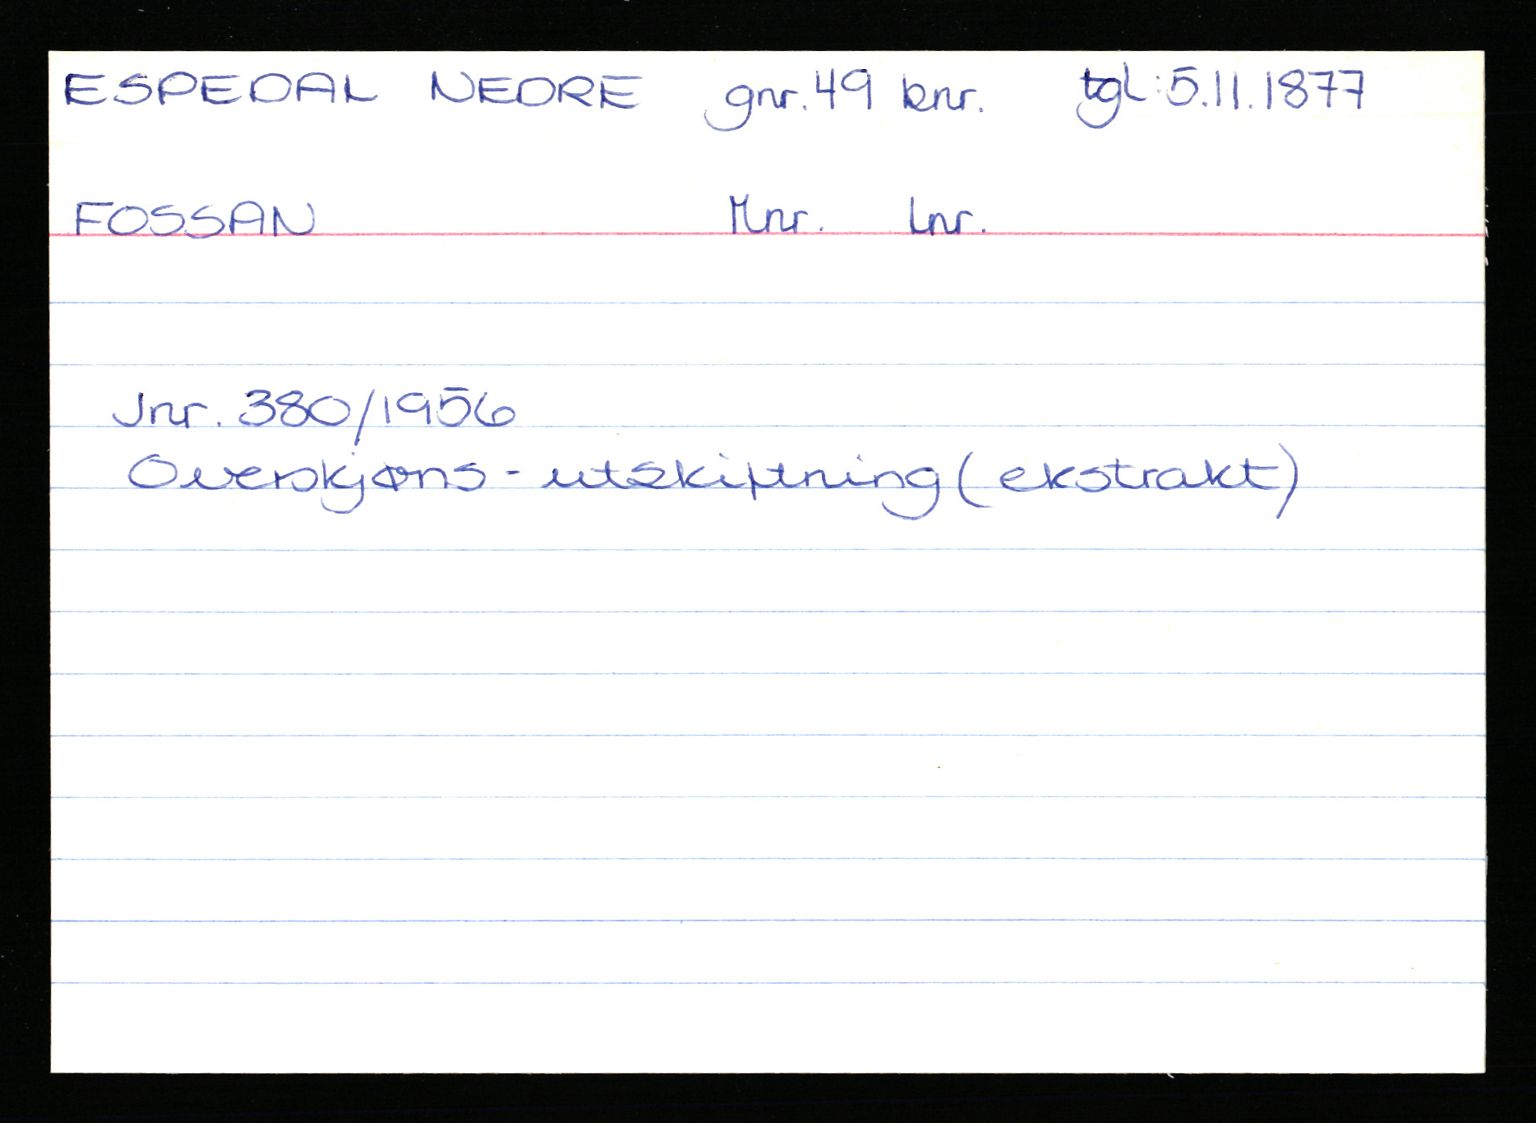 ESPEDAL NEDRE gnr. 49 bnr. tgl: 5.11.1877
FOSSAN Mnr. Lnr.
Jnr. 380/1956
Overskjøns-utskiftning (ekstrakt)